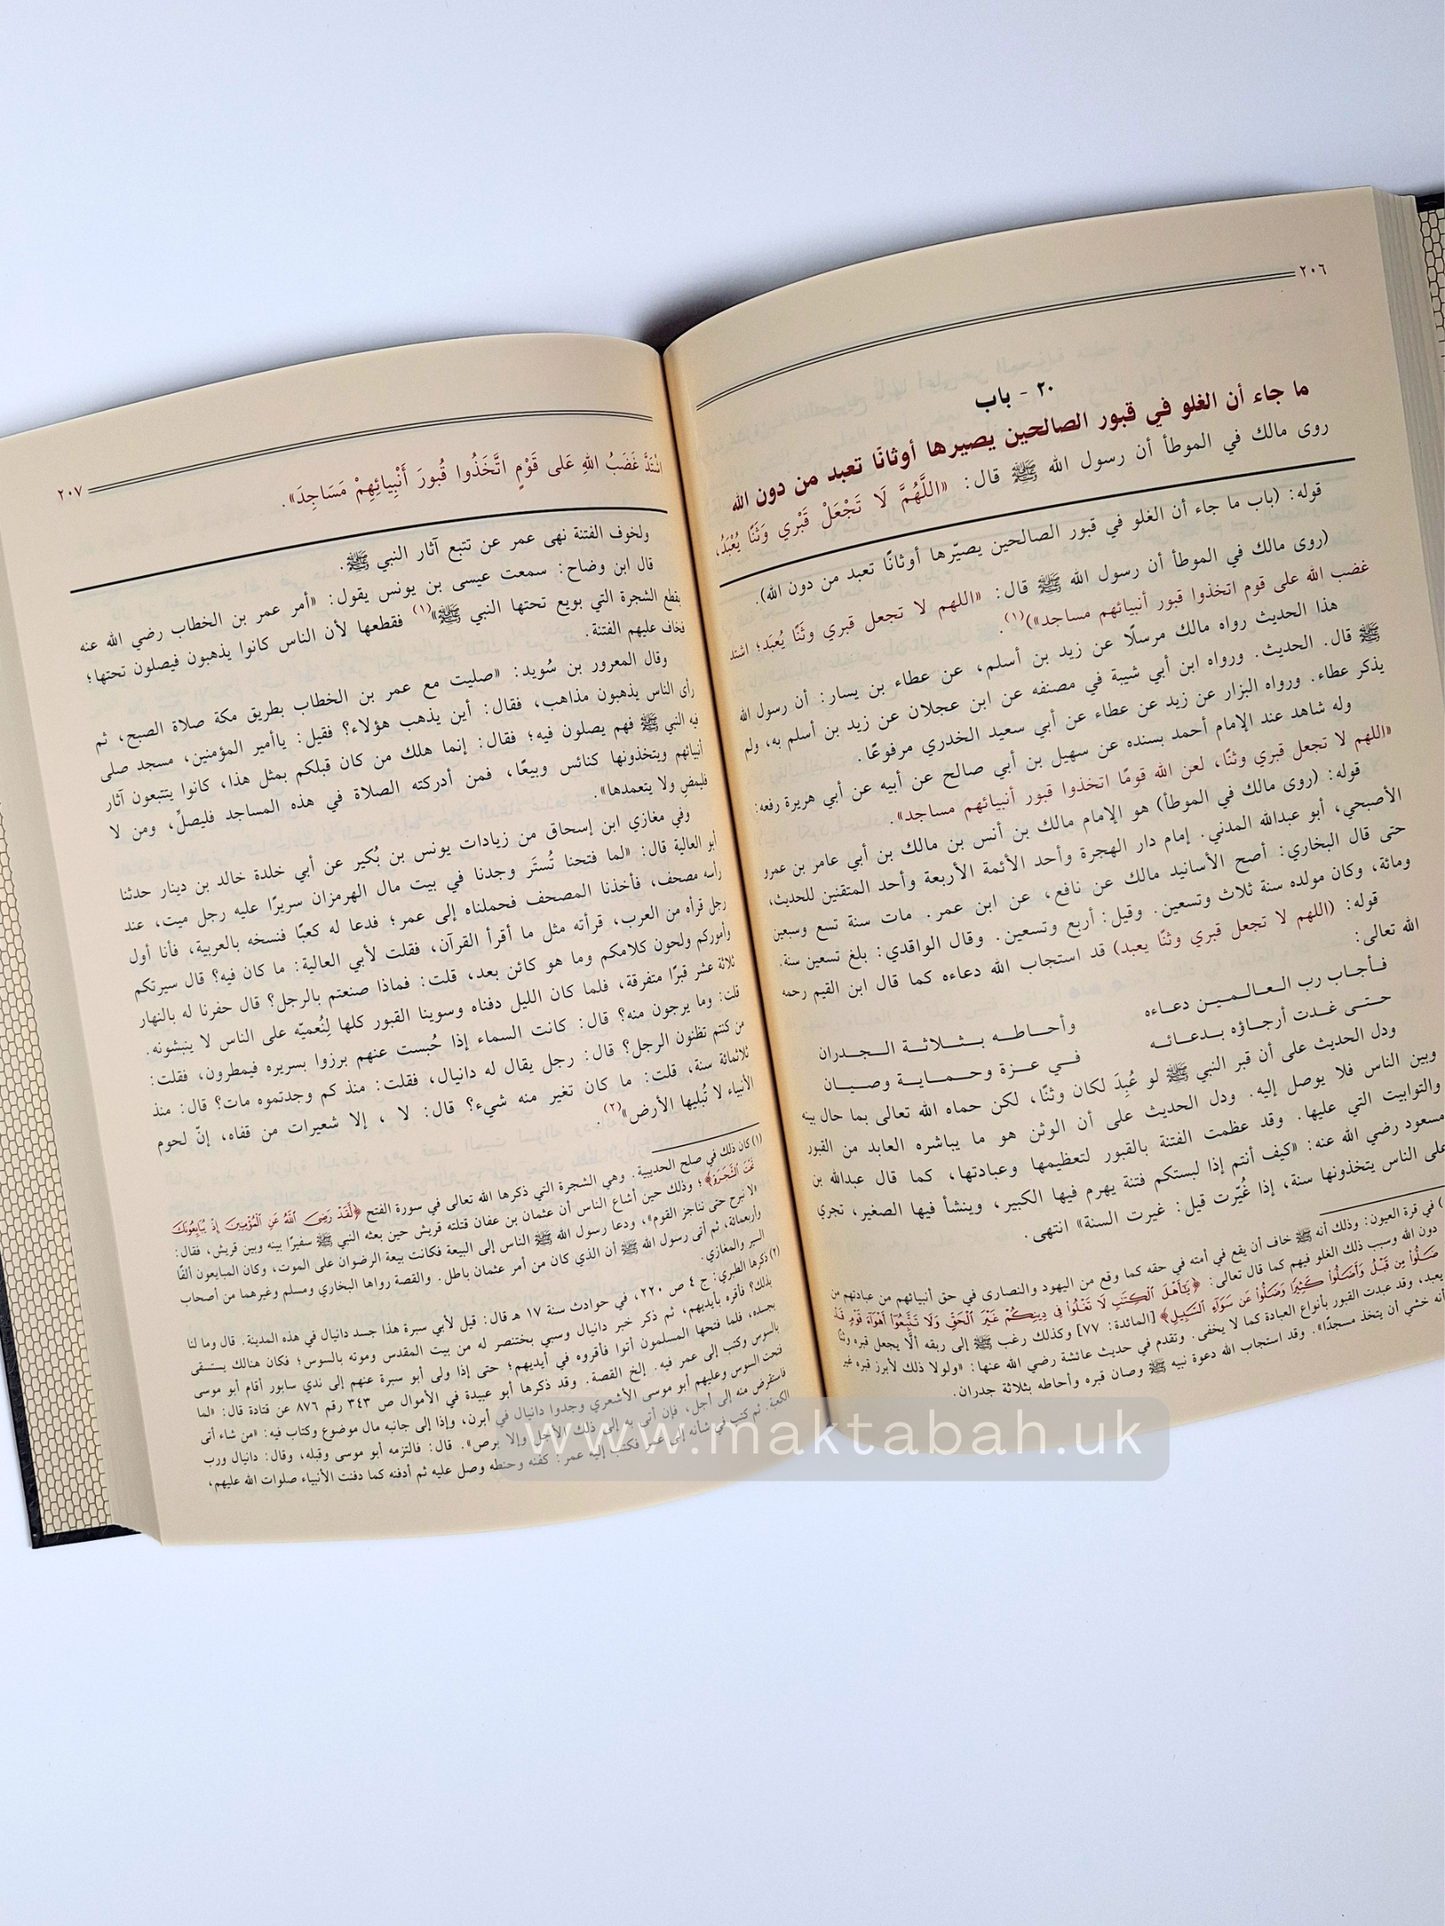 ٢٠٦
٢٠ - باب
ما جاء أن الغلو في قبور الصالحين يصيرها أوثانًا تعبد من دون الله
روى مالك في الموطأ أن رسول الله ﷺ قال: «اللَّهُمَّ لَا تَجْعَلْ قَبْرِي وَثَنًا يُعْبَدُ،
قوله: (باب ما جاء أن الغلو في قبور الصالحين يصيّرها أوثانًا تعبد من دون الله).
(روى مالك في الموطأ أن رسول الله ﷺ قال: «اللهم لا تجعل قبري وثنًا يُعبَد؛ اشتد
غضب الله على قوم اتخذوا قبور أنبيائهم مساجد»)(١).
هذا الحديث رواه مالك مرسلًا عن زيد بن أسلم، عن عطاء بن يسار: أن رسول الله
ﷺ قال. الحديث. ورواه ابن أبي شيبة في مصنفه عن ابن عجلان عن زيد بن أسلم به، ولم
يذكر عطاء. ورواه البزار عن زيد عن عطاء عن أبي سعيد الخدري مرفوعًا.
وله شاهد عند الإمام أحمد بسنده عن سهيل بن أبي صالح عن أبيه عن أبي هريرة رفعه:
«اللهم لا تجعل قبري وثنًا، لعن الله قومًا اتخذوا قبور أنبيائهم مساجد».
قوله: (روى مالك في الموطأ) هو الإمام مالك بن أنس بن مالك بن أبي عامر بن عمرو
الأصبحي، أبو عبدالله المدني. إمام دار الهجرة وأحد الأئمة الأربعة وأحد المتقنين للحديث،
حتى قال البخاري: أصح الأسانيد مالك عن نافع، عن ابن عمر. مات سنة تسع وسبعين
ومائة، وكان مولده سنة ثلاث وتسعين. وقيل: أربع وتسعين. وقال الواقدي: بلغ تسعين سنة.
قوله: (اللهم لا تجعل قبري وثنًا يعبد) قد استجاب الله دعاءه كما قال ابن القيم رحمه
الله تعالى:
فـأجـاب رب الـعـالـمـيـن دعـاءه وأحـاطـه بـثـلاثـة الـجـدران
حـتـى غـدت أرجـاؤه بـدعـائـه فـي عـزة وحـمـايـة وصـيـان
ودل الحديث على أن قبر النبي ﷺ لو عُبِدَ لكان وثنًا، لكن حماه الله تعالى بما حال بينه
وبين الناس فلا يوصل إليه. ودل الحديث على أن الوثن هو ما يباشره العابد من القبور
والتوابيت التي عليها. وقد عظمت الفتنة بالقبور لتعظيمها وعبادتها، كما قال عبدالله بن
مسعود رضي الله عنه: «كيف أنتم إذا لبستكم فتنة يهرم فيها الكبير، وينشأ فيها الصغير، تجري
على الناس يتخذونها سنة، إذا غُيّرت قيل: غيرت السنة» انتهى.
في قرة العيون: وذلك أنه ﷺ خاف أن يقع في أمته في حقه كما وقع من اليهود والنصارى في حق أنبيائهم من عبادتهم من
دون الله وسبب ذلك الغلو فيهم كما قال تعالى: ﴿يَٰٓأَهْلَ ٱلْكِتَٰبِ لَا تَغْلُوا۟ فِى دِينِكُمْ غَيْرَ ٱلْحَقِّ وَلَا تَتَّبِعُوٓا۟ أَهْوَآءَ قَوْمٍ قَدْ
ضَلُّوا۟ مِن قَبْلُ وَأَضَلُّوا۟ كَثِيرًا وَضَلُّوا۟ عَن سَوَآءِ ٱلسَّبِيلِ﴾ [المائدة: ٧٧] وكذلك رغب ﷺ إلى ربه ألّا يجعل قبره وثنًا
يعبد، وقد عبدت القبور بأنواع العبادة كما لا يخفى. وتقدم في حديث عائشة رضي الله عنها: «ولولا ذلك لأبرز قبره غير
أنه خشي أن يتخذ مسجدًا». وقد استجاب الله دعوة نبيه ﷺ وصان قبره وأحاطه بثلاثة جدران.
٢٠٧
اشْتَدَّ غَضَبُ اللهِ عَلى قَوْمٍ اتَّخَذُوا قُبورَ أَنْبِيائِهِمْ مَسَاجِدَ».
ولخوف الفتنة نهى عمر عن تتبع آثار النبي ﷺ.
قال ابن وضاح: سمعت عيسى بن يونس يقول: «أمر عمر بن الخطاب رضي الله عنه
بقطع الشجرة التي بويع تحتها النبي ﷺ»(١) فقطعها لأن الناس كانوا يذهبون فيصلون تحتها؛
فخاف عليهم الفتنة.
وقال المعرور بن سُويد: «صليت مع عمر بن الخطاب بطريق مكة صلاة الصبح، ثم
رأى الناس يذهبون مذاهب، فقال: أين يذهب هؤلاء؟ فقيل: ياأمير المؤمنين، مسجد صلى
فيه النبي ﷺ فهم يصلون فيه؛ فقال: إنما هلك من كان قبلكم بمثل هذا، كانوا يتتبعون آثار
أنبيائهم ويتخذونها كنائس وبيعًا، فمن أدركته الصلاة في هذه المساجد فليصلِّ، ومن لا
فليمض ولا يتعمدها».
وفي مغازي ابن إسحاق من زيادات يونس بن بُكير عن أبي خلدة خالد بن دينار حدثنا
أبو العالية قال: «لما فتحنا تُستَر وجدنا في بيت مال الهرمزان سريرًا عليه رجل ميت، عند
رأسه مصحف، فأخذنا المصحف فحملناه إلى عمر؛ فدعا له كعبًا فنسخه بالعربية، فأنا أول
رجل قرأه من العرب، قرأته مثل ما أقرأ القرآن، فقلت لأبي العالية: ما كان فيه؟ قال سيرتكم
وأموركم ولحون كلامكم وما هو كائن بعد، قلت: فماذا صنعتم بالرجل؟ قال حفرنا له بالنهار
ثلاثة عشر قبرًا متفرقة، فلما كان الليل دفناه وسوينا القبور كلها لِنُعميّه على الناس لا ينبشونه.
قلت: وما يرجون منه؟ قال: كانت السماء إذا حُبست عنهم برزوا بسريره فيمطرون، فقلت:
من كنتم تظنون الرجل؟ قال: رجل يقال له دانيال، فقلت: منذ كم وجدتموه مات؟ قال: منذ
ثلاثمائة سنة، قلت: ما كان تغير منه شيء؟ قال: لا ، إلا شعيرات من قفاه، إنّ لحوم
الأنبياء لا تُبليها الأرض»(٢).
(١) كان ذلك في صلح الحديبية. وهي الشجرة التي ذكرها الله تعالى في سورة الفتح ﴿لَّقَدْ رَضِىَ ٱللَّهُ عَنِ ٱلْمُؤْمِنِينَ إِذْ يُبَايِعُونَكَ
تَحْتَ ٱلشَّجَرَةِ﴾؛ وذلك حين أشاع الناس أن عثمان بن عفان قتلته قريش حين بعثه النبي ﷺ سفيرًا بينه وبين قريش، فقال:
«لا نبرح حتى نناجز القوم»، ودعا رسول الله ﷺ الناس إلى البيعة فكانت بيعة الرضوان على الموت، وكان المبايعون ألفًا
وأربعمائة، ثم أتى رسول الله ﷺ أن الذي كان من أمر عثمان باطل. والقصة رواها البخاري ومسلم وغيرهما من أصحاب
السير والمغازي.
(٢) ذكرها الطبري: ج ٤ ص ٢٢٠، في حوادث سنة ١٧ هـ قال: قيل لأبي سبرة هذا جسد دانيال في هذه المدينة. قال وما لنا
بذلك؟ فأقره بأيديهم، ثم ذكر خبر دانيال وسبي بختنصر له من بيت المقدس وموته بالسوس؛ فكان هنالك يستسقى
بجسده، فلما فتحها المسلمون أتوا فأقروه في أيديهم؛ حتى إذا ولى أبو سبرة عنهم إلى ندي سابور أقام أبو موسى
بالسوس وكتب إلى عمر فيه. إلخ القصة. وقد ذكرها أبو عبيدة في الأموال ص ٣٤٣ رقم ٨٧٦ عن قتادة قال: «لما
فتحت السوس وعليهم أبو موسى الأشعري وجدوا دانيال في أبرن، وإذا إلى جانبه مال موضوع وكتاب فيه: «من شاء أتى
فاستقرض منه إلى أجل، فإن أتى به إلى ذلك الأجل وإلا برص». قال: فالتزمه أبو موسى وقبله، وقال: دانيال ورب
الكعبة. ثم كتب في شأنه إلى عمر فكتب إليه عمر: كفنه وحنطه وصل عليه ثم أدفنه كما دفنت الأنبياء صلوات الله عليهم،
www.maktabah.uk